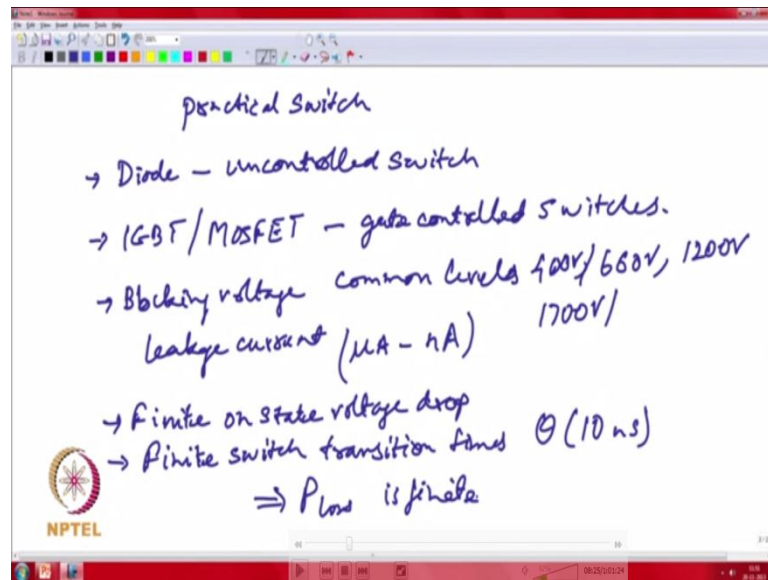 Practical Switch
→ Diode – uncontrolled switch
→ IGBT/MOSFET – gate controlled switches.
→ Blocking voltage common levels 600V/ 660V, 1200V
1700V/
leakage current (μA – nA)
→ Finite on state voltage drop
→ Finite switch transition times θ(10 ns)
⇒ PLoss is finite
NPTEL
09:25/1:01:24